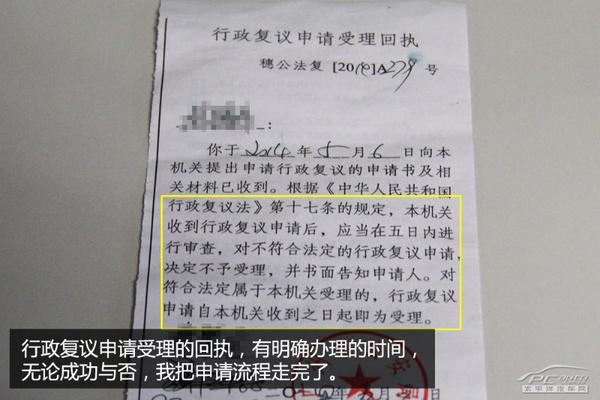 行政复议申请受理回执
穗公法复 [2014]A279 号
：
你于 2014 年 5 月 6 日向本
机关提出申请行政复议的申请书及相
关材料已收到。根据《中华人民共和国
行政复议法》第十七条的规定，本机关
收到行政复议申请后，应当在五日内进
行审查，对不符合法定的行政复议申请，
决定不予受理，并书面告知申请人。对
符合法定属于本机关受理的，行政复议
申请自本机关收到之日起即为受理。
行政复议申请受理的回执，有明确办理的时间，
无论成功与否，我把申请流程走完了。
太平洋汽车网